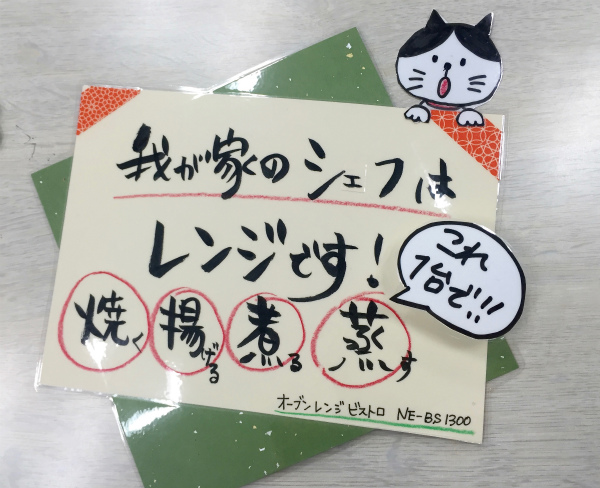 我が家のシェフは
レンジです!
これ
1台で!!
焼く 揚げる 煮る 蒸す
オーブンレンジ ビストロ NE-BS1300